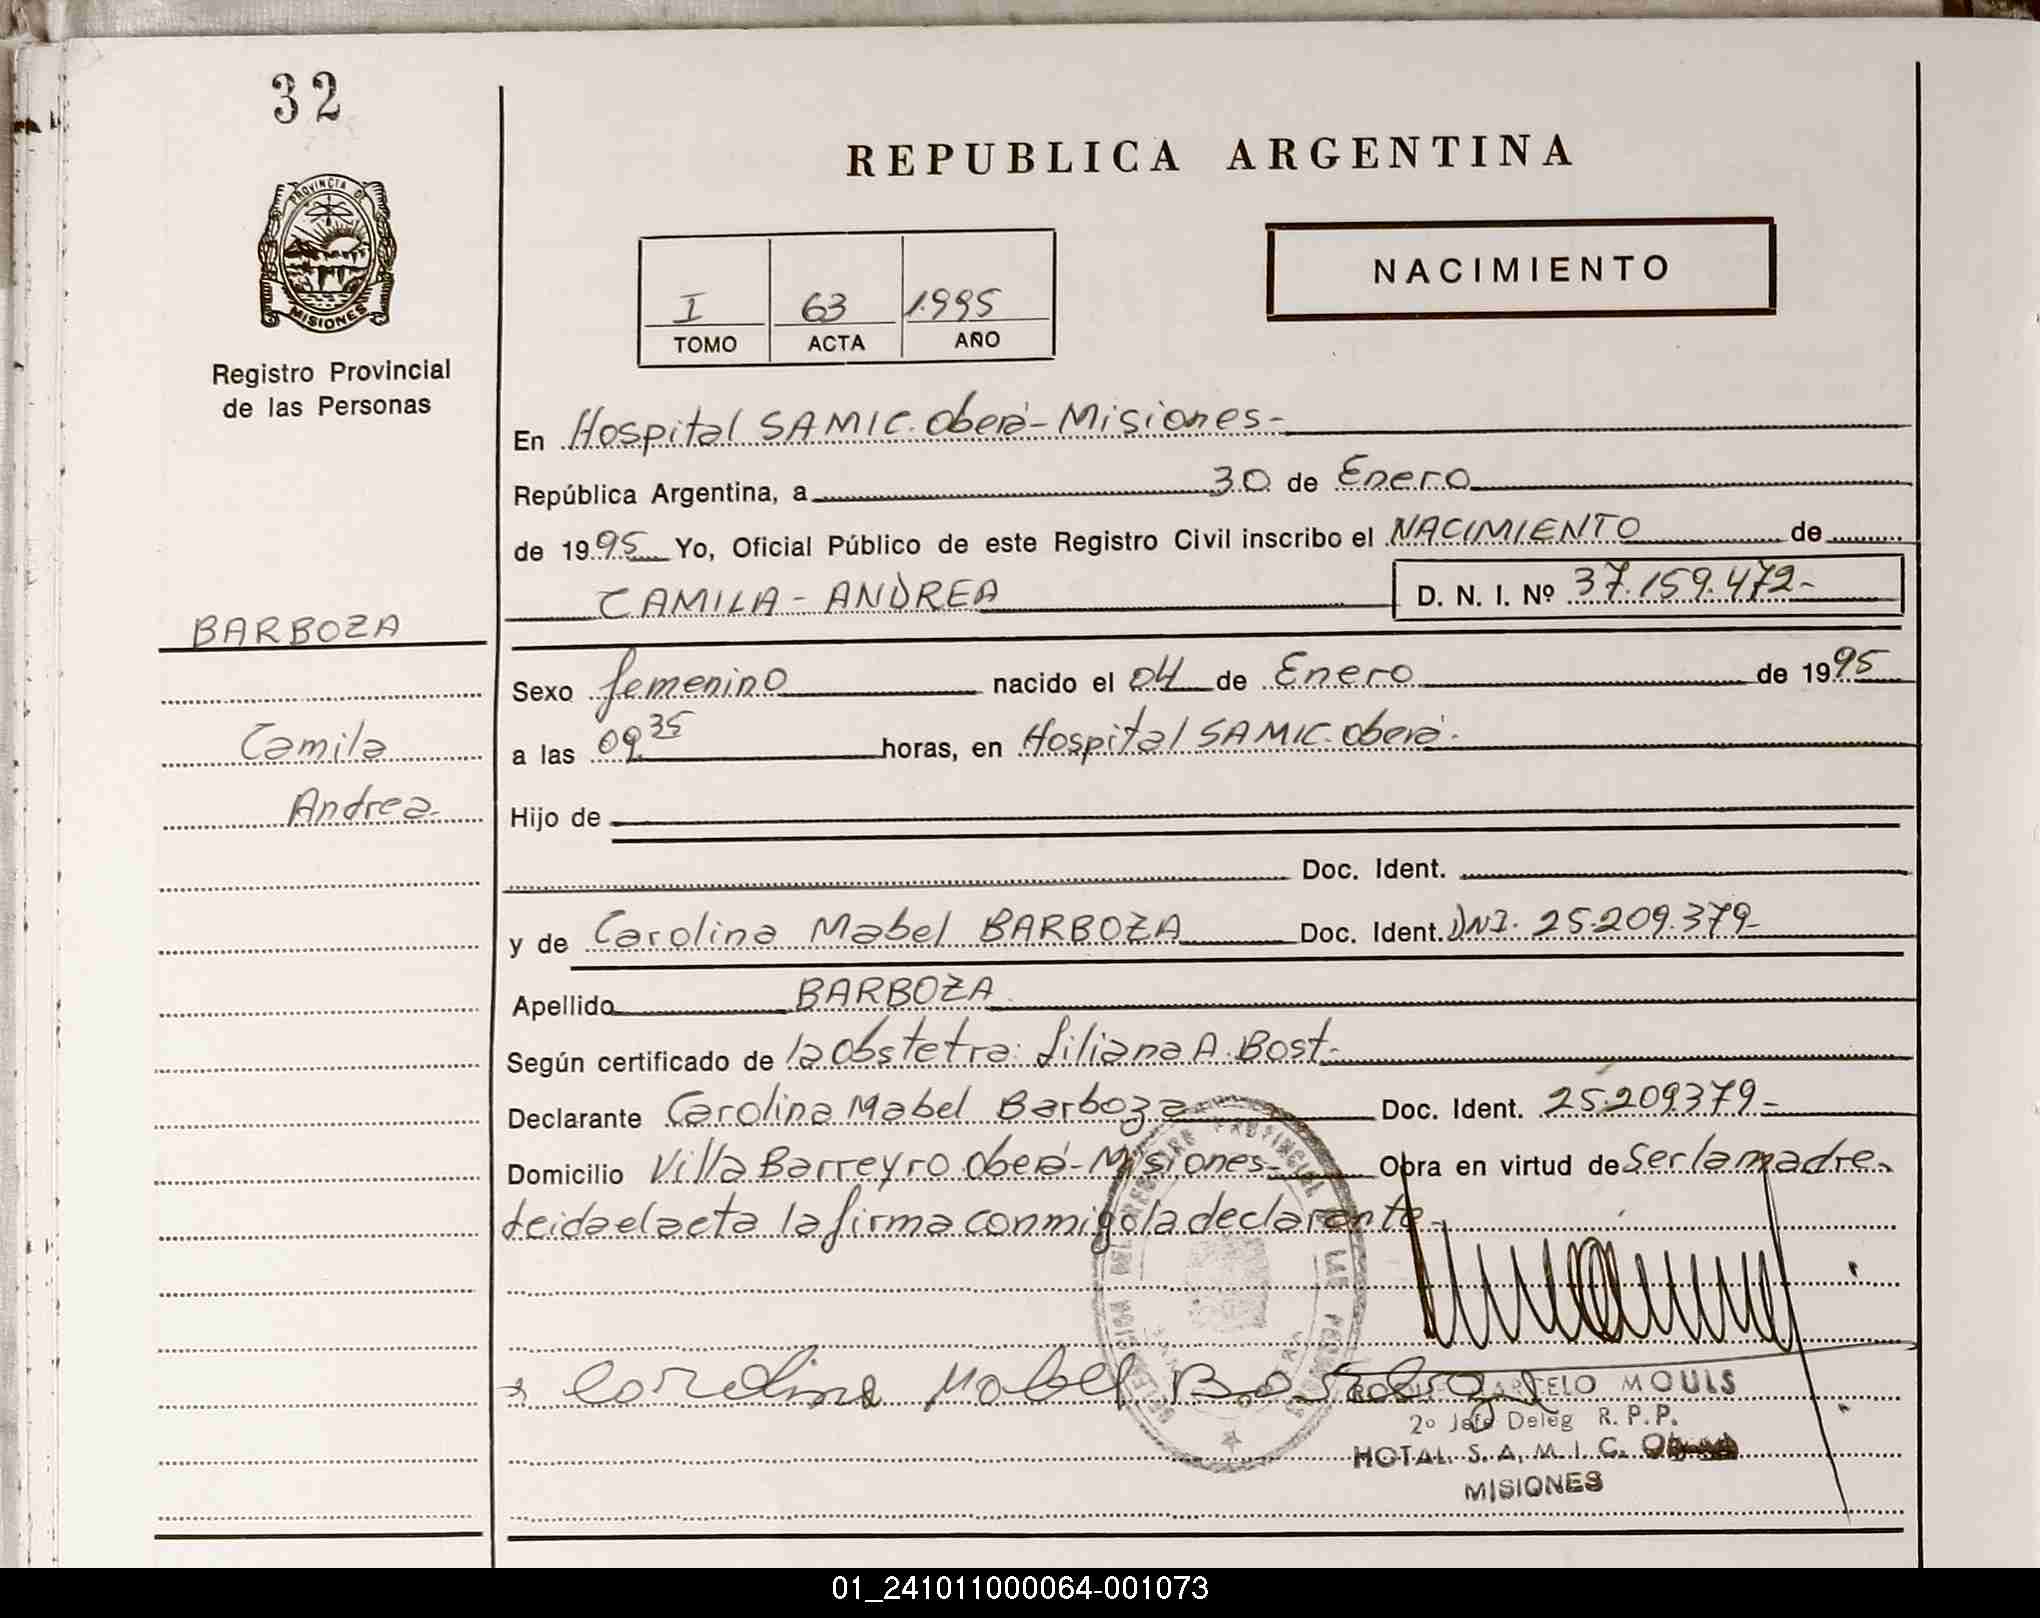 32
PROVINCIA DE
MISIONES
Registro Provincial
de las Personas
REPUBLICA ARGENTINA
NACIMIENTO
I 63 1.995
TOMO ACTA AÑO
En Hospital SAMIC. Oberá - Misiones -
República Argentina, a 30 de Enero
de 1995 Yo, Oficial Público de este Registro Civil inscribo el NACIMIENTO de
CAMILA - ANDREA D. N. I. Nº 37.159.472-
BARBOZA
Camila
Andrea-
Sexo femenino nacido el 04 de Enero de 1995
a las 09 35 horas, en Hospital SAMIC. Oberá.
Hijo de
Doc. Ident.
y de Carolina Mabel BARBOZA Doc. Ident. DNI. 25.209.379-
Apellido BARBOZA
Según certificado de la obstetra: Liliana A. Bost-
Declarante Carolina Mabel Barboza Doc. Ident. 25.209379-
Domicilio Villa Barreyro. Oberá - Misiones- Obra en virtud de Ser la madre.
Leida el acta la firma conmigo la declarante-
Carolina Mabel
MARCELO MOULS
2º Jefe Deleg R. P. P.
HOTAL S. A. M. I. C.
MISIONES
01_241011000064-001073